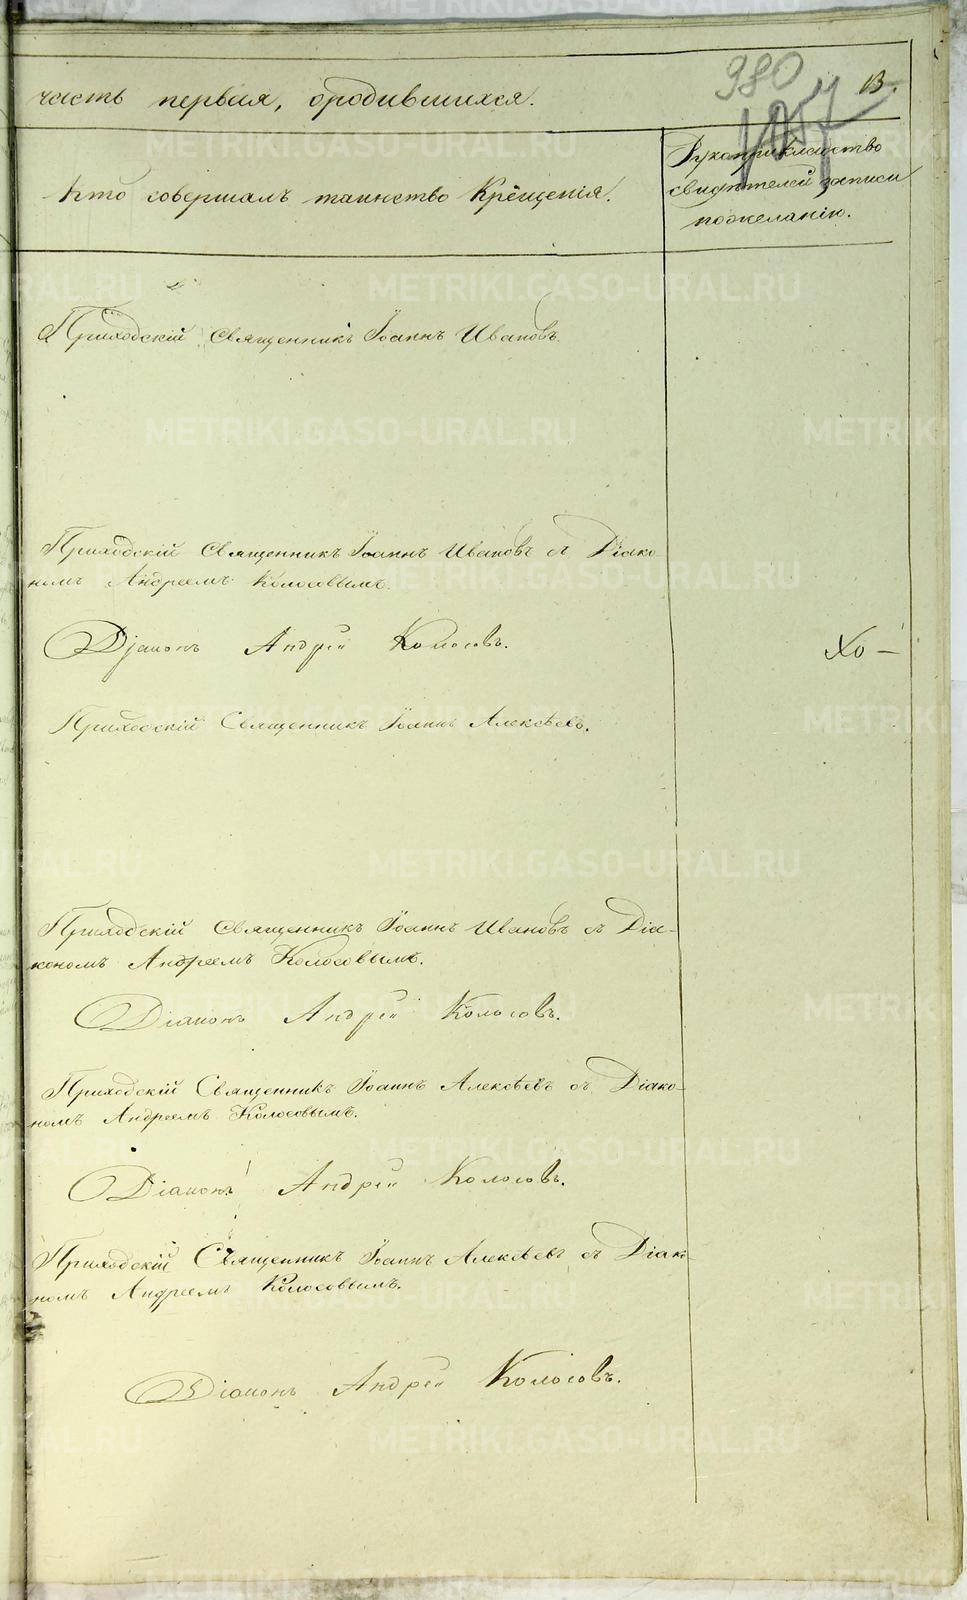 980
часть первая, ородившихся.
13.
Кто совершалъ таинство Крещенія.
Рукоприкладство
свидѣтелей записи
пожеланію.
Приходскій Священникъ Іоаннъ Ивановъ.
Приходскій Священникъ Іоаннъ Ивановъ съ Діако
номъ Андреемъ Колосовымъ.
Діаконъ Андрей Колосовъ.
Хо —
Приходскій Священникъ Іоаннъ Алексѣевъ.
Приходскій Священникъ Іоаннъ Ивановъ съ Діа-
кономъ Андреемъ Колосовымъ.
Діаконъ Андрей Колосовъ.
Приходскій Священникъ Іоаннъ Алексѣевъ съ Діако-
номъ Андреемъ Колосовымъ.
Діаконъ Андрей Колосовъ.
Приходскій Священникъ Іоаннъ Алексѣевъ съ Діако
номъ Андреемъ Колосовымъ.
Діаконъ Андрей Колосовъ.
METRIKI.GASO-URAL.RU